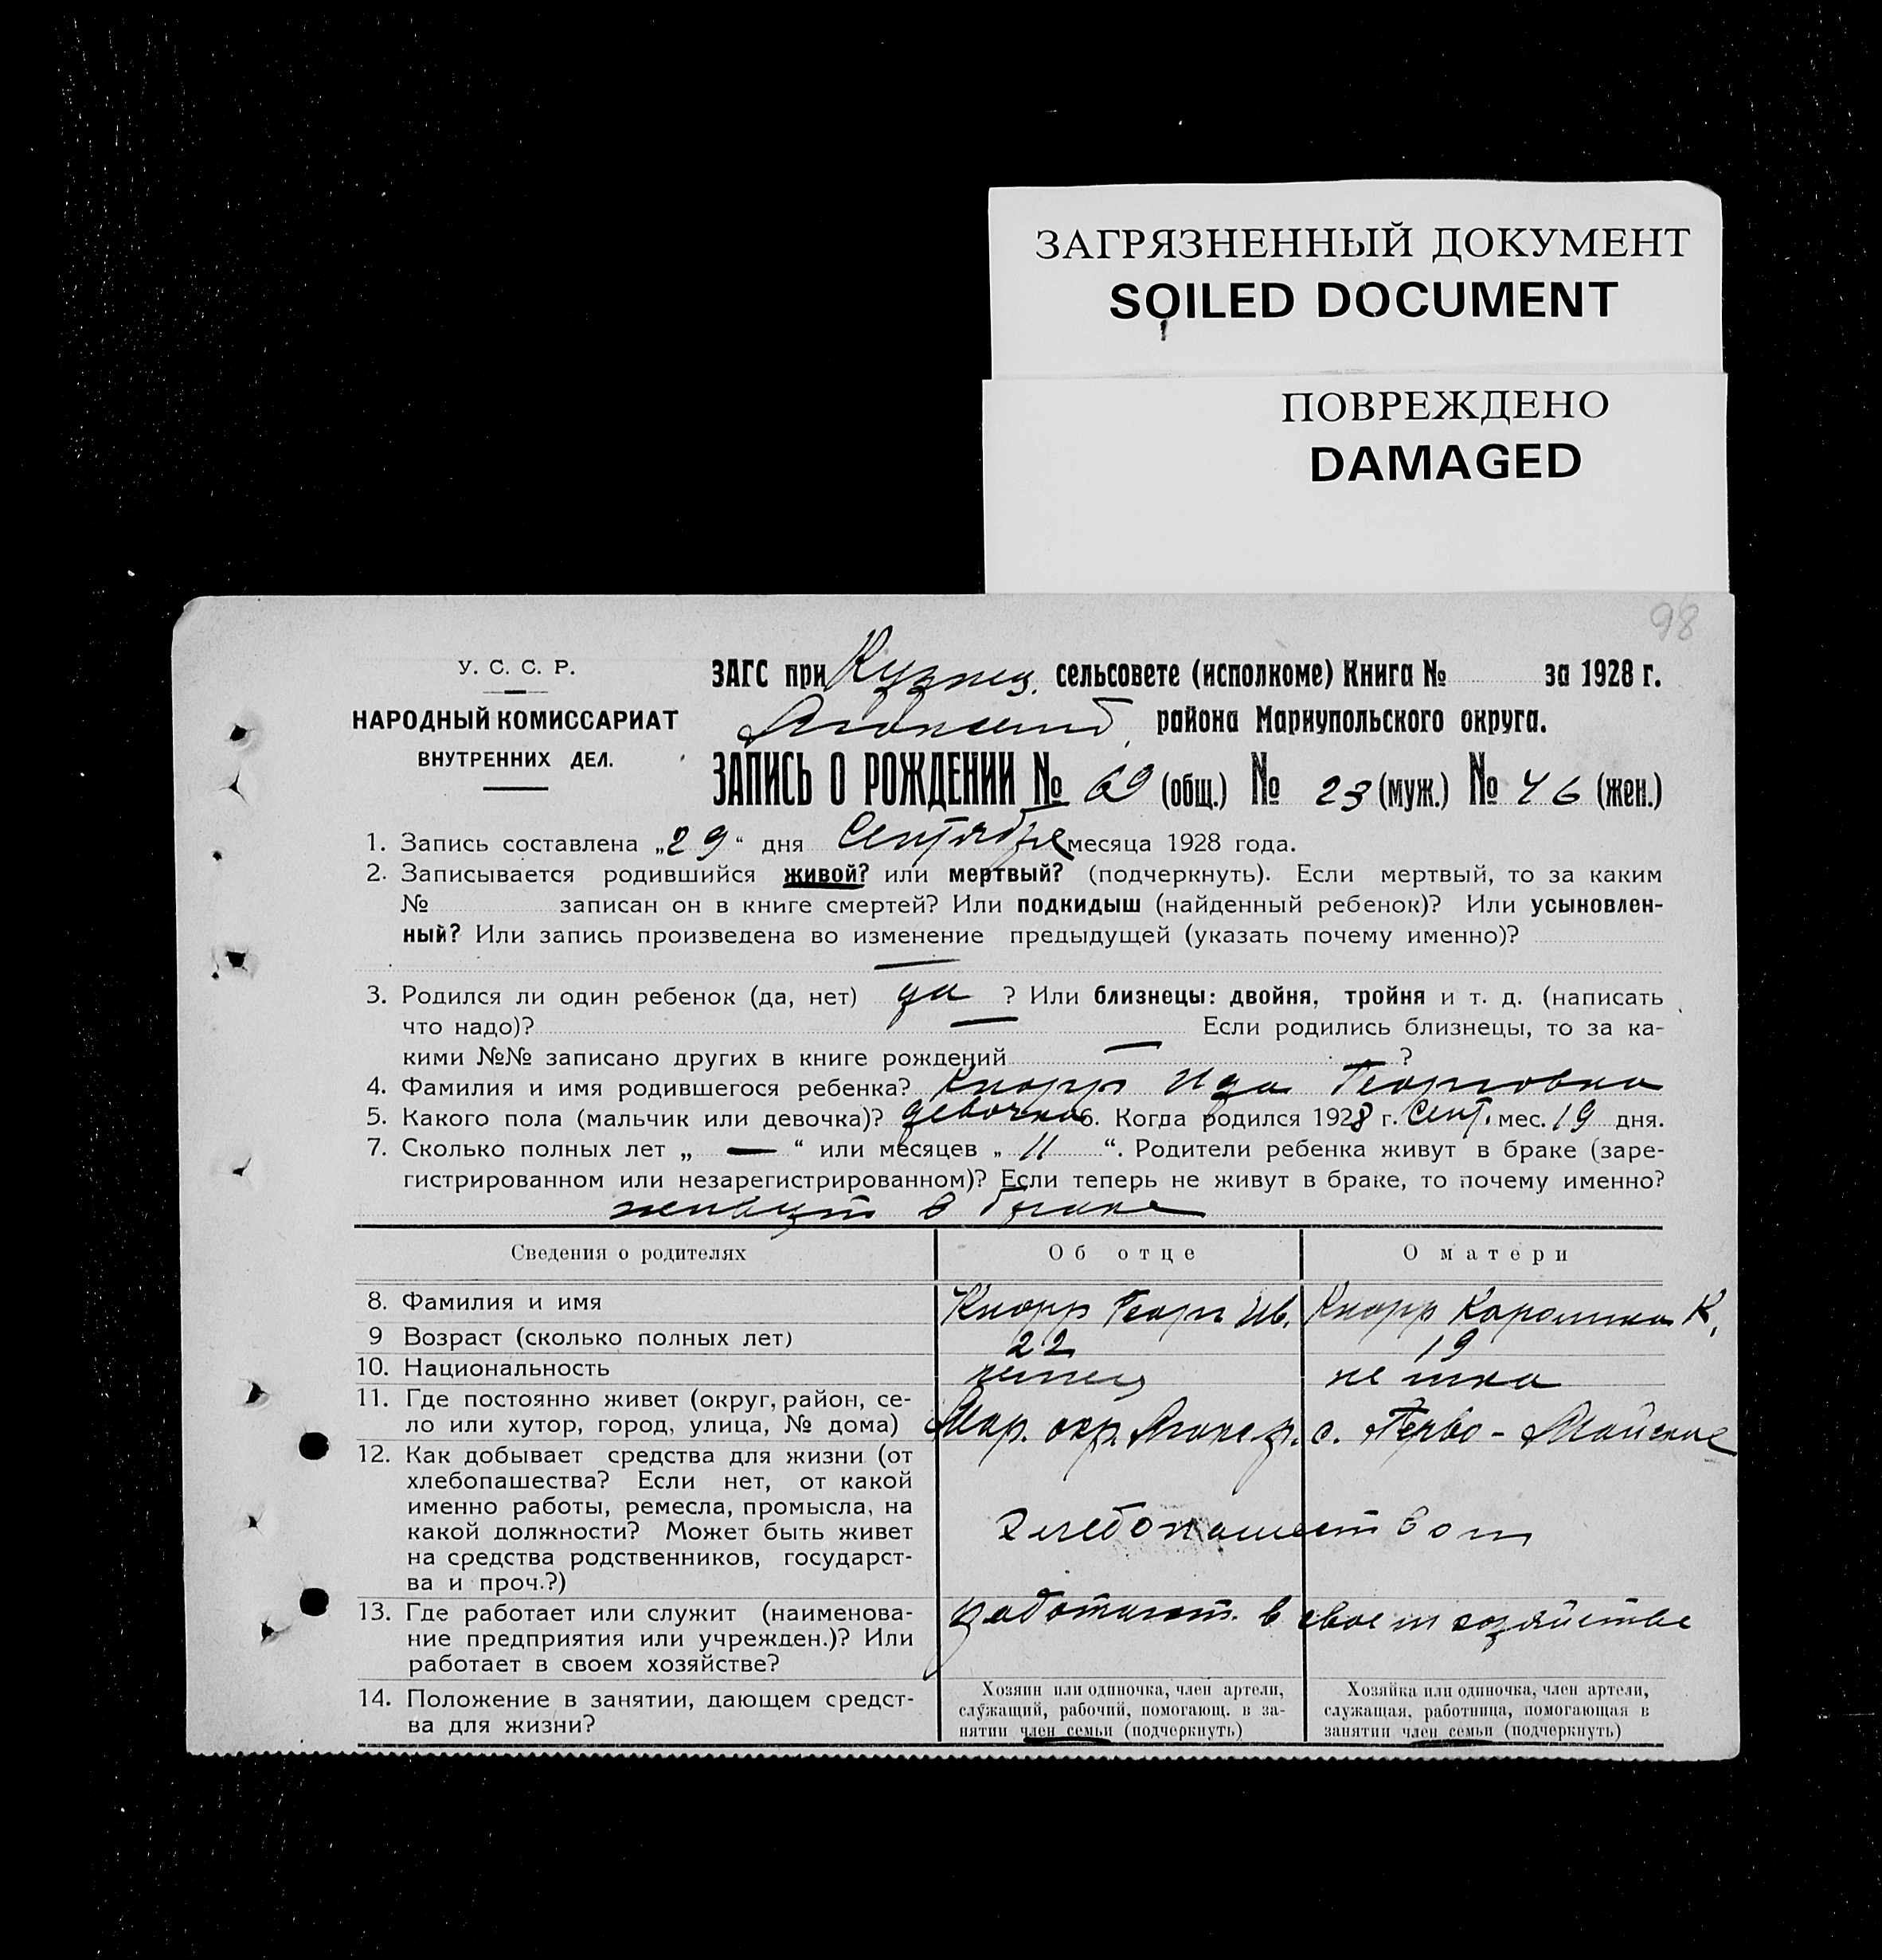 ЗАГРЯЗНЕННЫЙ ДОКУМЕНТ
SOILED DOCUMENT
ПОВРЕЖДЕНО
DAMAGED
98
У. С. С. Р.
НАРОДНЫЙ КОМИССАРИАТ
ВНУТРЕННИХ ДЕЛ.
ЗАГС при Кузнец. сельсовете (исполкоме) Книга № за 1928 г.
района Мариупольского округа.
ЗАПИСЬ О РОЖДЕНИИ № 69 (общ.) № 23 (муж.) № 46 (жен.)
1. Запись составлена „29“ дня Сентября месяца 1928 года.
2. Записывается родившийся живой? или мертвый? (подчеркнуть). Если мертвый, то за каким
№ записан он в книге смертей? Или подкидыш (найденный ребенок)? Или усыновлен-
ный? Или запись произведена во изменение предыдущей (указать почему именно)?
—
3. Родился ли один ребенок (да, нет) да ? Или близнецы: двойня, тройня и т. д. (написать
что надо)? — Если родились близнецы, то за ка-
кими №№ записано других в книге рождений — ?
4. Фамилия и имя родившегося ребенка? Кнорр Ида Георговна
5. Какого пола (мальчик или девочка)? девочка 6. Когда родился 1928 г. Сент. мес. 19 дня.
7. Сколько полных лет „ — “ или месяцев „ 11 “. Родители ребенка живут в браке (заре-
гистрированном или незарегистрированном)? Если теперь не живут в браке, то почему именно?
живут в браке
Сведения о родителях Об отце О матери
8. Фамилия и имя Кнорр Георг Ив. Кнорр Каролина К.
9 Возраст (сколько полных лет) 22 19
10. Национальность немец немка
11. Где постоянно живет (округ, район, се-
ло или хутор, город, улица, № дома) Мар. окр. с. Перво-Майское
12. Как добывает средства для жизни (от
хлебопашества? Если нет, от какой
именно работы, ремесла, промысла, на
какой должности? Может быть живет
на средства родственников, государст-
ва и проч.?)
хлебопашеством
13. Где работает или служит (наименова-
ние предприятия или учрежден.)? Или
работает в своем хозяйстве?
работают. в своем хозяйстве
14. Положение в занятии, дающем средст-
ва для жизни?
Хозяин или одиночка, член артели,
служащий, рабочий, помогающ. в за-
нятии член семьи (подчеркнуть)
Хозяйка или одиночка, член артели,
служащая, работница, помогающая в
занятии член семьи (подчеркнуть)